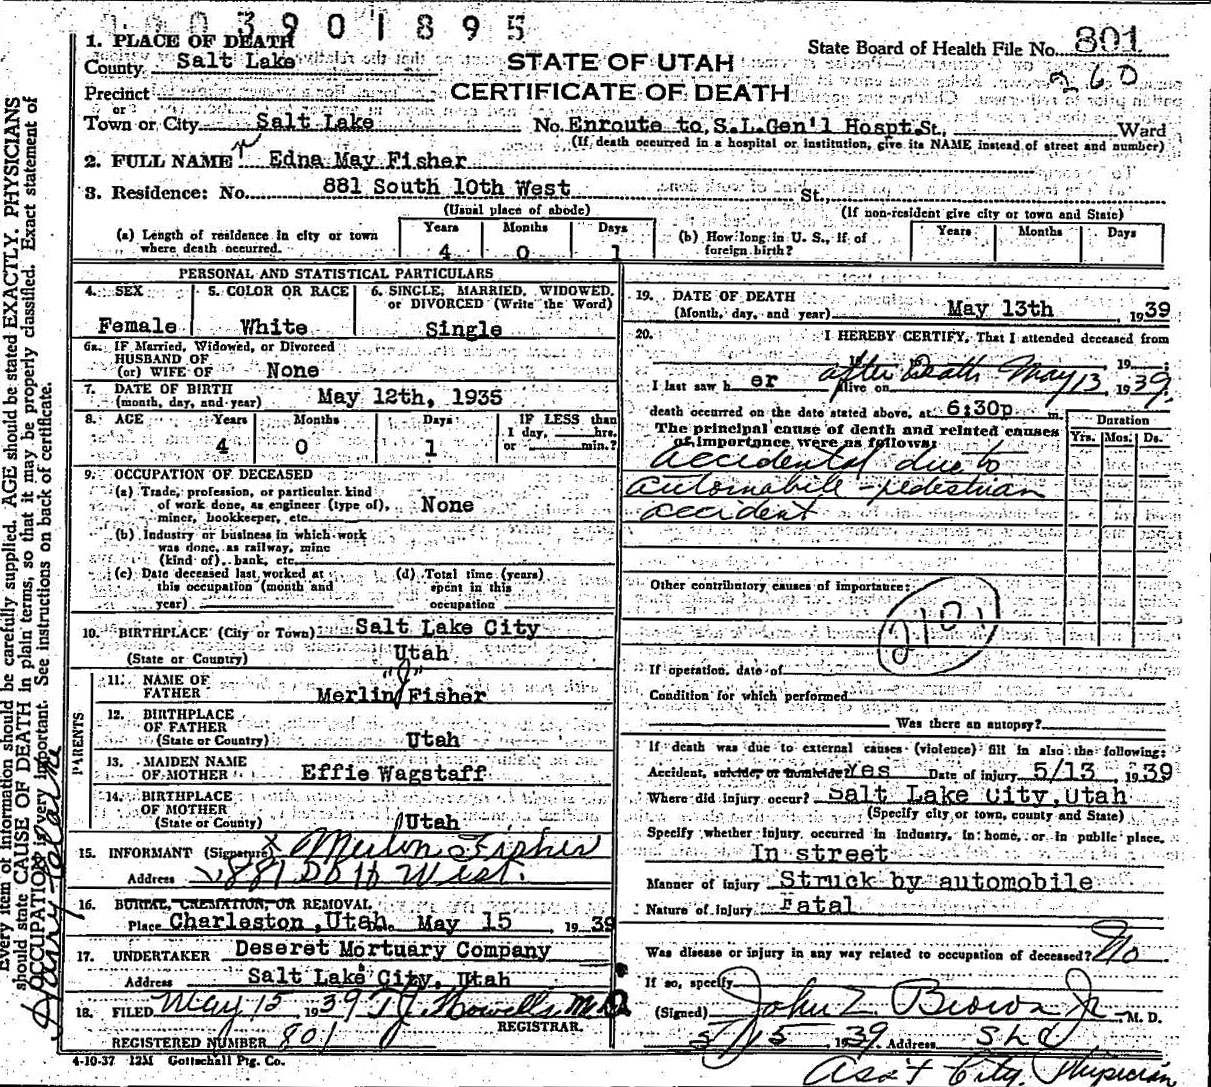 003901895
1. PLACE OF DEATH
County Salt Lake
STATE OF UTAH
State Board of Health File No. 801
260
Precinct
CERTIFICATE OF DEATH
or
Town or City Salt Lake No. Enroute to, S.L.Gen'l Hospt. St., Ward
(If death occurred in a hospital or institution, give its NAME instead of street and number)
2. FULL NAME Edna May Fisher
3. Residence: No. 881 South 10th West St.,
(Usual place of abode) (If non-resident give city or town and State)
(a) Length of residence in city or town where death occurred. Years 4 Months 0 Days 1
(b) How long in U. S., if of foreign birth? Years Months Days
PERSONAL AND STATISTICAL PARTICULARS
4. SEX Female
5. COLOR OR RACE White
6. SINGLE, MARRIED, WIDOWED, or DIVORCED (Write the Word) Single
6a. IF Married, Widowed, or Divorced
HUSBAND OF
(or) WIFE OF None
7. DATE OF BIRTH
(month, day, and year) May 12th, 1935
8. AGE Years 4 Months 0 Days 1
IF LESS than 1 day, hrs. or min.?
9. OCCUPATION OF DECEASED
(a) Trade, profession, or particular kind
of work done, as engineer (type of),
miner, bookkeeper, etc. None
(b) Industry or business in which work
was done, as railway, mine
(kind of), bank, etc.
(c) Date deceased last worked at this occupation (month and year)
(d) Total time (years) spent in this occupation
10. BIRTHPLACE (City or Town) Salt Lake City
(State or Country) Utah
PARENTS
11. NAME OF
FATHER Merlin "J" Fisher
12. BIRTHPLACE
OF FATHER
(State or Country) Utah
13. MAIDEN NAME
OF MOTHER Effie Wagstaff
14. BIRTHPLACE
OF MOTHER
(State or Country) Utah
15. INFORMANT (Signature) x Merlin Fisher
Address 881 So 10 West.
16. BURIAL, CREMATION, OR REMOVAL
Place Charleston, Utah May 15, 1939
17. UNDERTAKER Deseret Mortuary Company
Address Salt Lake City, Utah
18. FILED May 15 1939 T.J. Howells M.D.
REGISTRAR.
REGISTERED NUMBER 801
4-10-37 12M Gottschall Ptg. Co.
19. DATE OF DEATH
(Month, day, and year) May 13th, 1939
20. I HEREBY CERTIFY, That I attended deceased from
19
I last saw her alive on after Death May 13, 1939.
death occurred on the date stated above, at 6:30p m.
The principal cause of death and related causes
of importance were as follows:
Duration
Yrs. Mos. Ds.
accidental due to
automobile-pedestrian
accident
Other contributory causes of importance:
2101
If operation, date of
Condition for which performed
Was there an autopsy?
If death was due to external causes (violence) fill in also the following:
Accident, suicide, or homicide? Yes Date of injury 5/13, 1939
Where did injury occur? Salt Lake City, Utah
(Specify city or town, county and State)
Specify whether injury occurred in industry, in home, or in public place.
In street
Manner of injury Struck by automobile
Nature of injury Fatal
Was disease or injury in any way related to occupation of deceased? No
If so, specify
(Signed) John Z Brown Jr M. D.
5/15 1939 Address S L C
Ass't City Physician
Every item of information should be carefully supplied. AGE should be stated EXACTLY. PHYSICIANS
should state CAUSE OF DEATH in plain terms, so that it may be properly classified. Exact statement of
OCCUPATION is very important. See instructions on back of certificate.